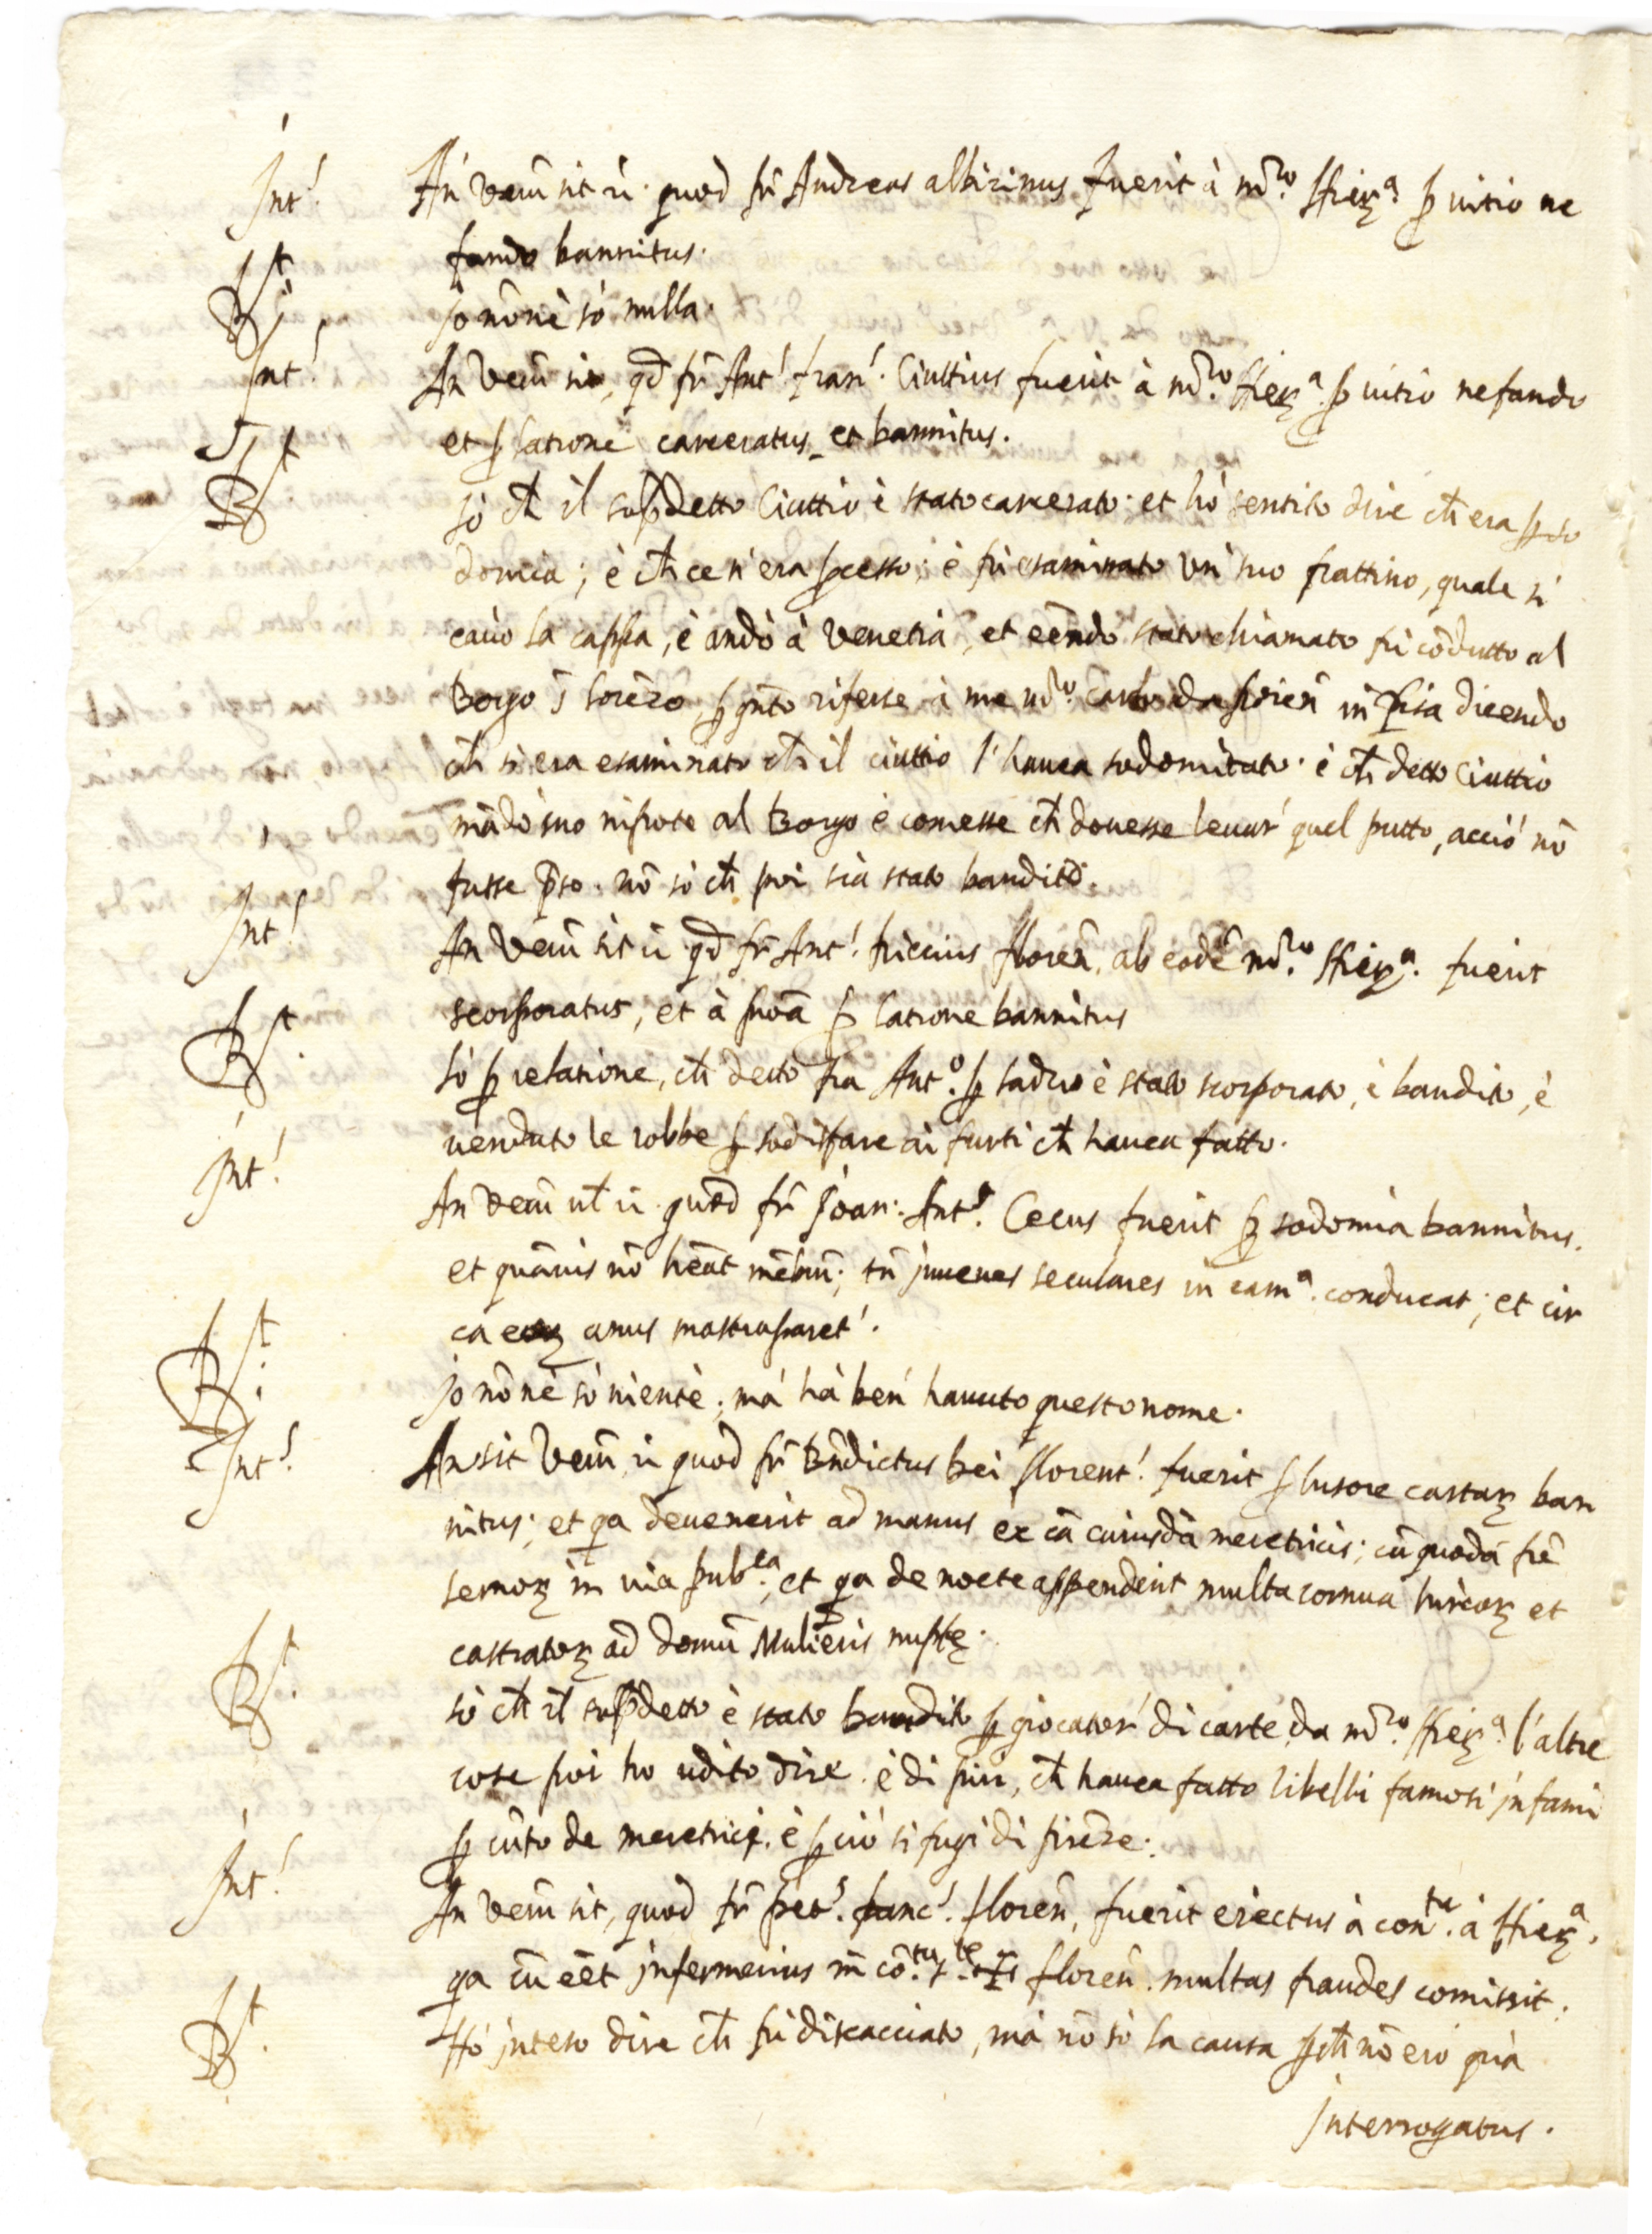 Int! An verũ sit ũ quod fr̃ Andreas albizinus fuerit à m̃ro Hierᵃ. ꝑ vitio ne
fando bannitus.
Rt. Io nõ nè sò nulla.
Int! An verũ sit, qd fr̃ Ant! fran! Ciuttius fuerit à m̃ro. Hierᵃ. ꝑ vitio nefando
et ꝑ latrone carceratus et bannitus.
Rt. sò ch̃ il sup̃detto Ciuttio è stato carcerato. et hò sentito dire ch̃ era ꝑ so
domia; è ch̃ ce n'era ꝓcesso; è fù esaminato un' suo frattino, quale si
cauò la cappa, è andò à Venetia, et eẽndo stato chiamato fù cõdutto al
Borgo S lorẽzo, ꝑ q̃nto riferse à me m̃ro. Carlo da fioren̄ in Pisa dicendo
ch̃ si era esaminato ch̃ il ciuttio l'hauea sodomitato. è ch̃ detto Ciuttio
mãdò suo nipote al Borgo è comesse ch̃ douesse leuar' quel putto, acciò nõ
fusse p̃so. nõ sò ch̃ poi sia stato bandito.
Int! An verũ sit ũ qd fr̃ Ant! Riccius floren̄. ab eodẽ m̃ro. Hierᵃ. fuerit
scorporatus, et à ꝓuã ꝑ latrone bannitus
Rt. sò ꝑ relatione, ch̃ detto fra Antº. ꝑ ladro è stato scorporato, è bandito, è
uenduto le robbe ꝑ sodisfare ai furti ch̃ hauea fatto.
Int! An verũ ut ũ quod fr̃ Joan: Ant!. Cecus fuerit ꝑ sodomia bannitus.
et quãuis nõ heãt mẽbrũ; tñ juuenes seculares in camᵃ. conducat; et cir
ca eoꝝ anus mastruparet!.
Rt. Io nõ nè sò niente; mà hà ben' hauuto questo nome.
Int! An sit verũ, ũ quod fr̃ Bñdictus bei florent! fuerit ꝑ lusore cartaꝝ ban
nitus; et qa deuenerit ad manus ex cã cuiusdã meretricis; cũ quodã frẽ
seruoꝝ in uia pub.ᶜᵃ, et qa de nocte appenderit multa cornua hircoꝝ et
castratoꝝ ad domũ Mulieris nuptę.
Rt. sò ch̃ il sup̃detto è stato bandito ꝑ giocator' di carte da m̃ro. Hierᵃ. l'altre
cose poi ho udito dire. è di piu, ch̃ hauea fatto libelli famosi infami
ꝑ cũto de meretrici. è ꝑ ciò si fugì di firẽze.
Int! An verũ sit, quod fr̃ Pet!. Panc!. floren̄, fuerit eiectus à conᵗᵘ. à Hierᵃ.
qa cũ eẽt infermerius in cõ.ᵗᵘ floren̄. multas fraudes comissit.
Rt. Hò inteso dire ch̃ fù discacciato, mà nõ sò la causa ꝑch̃ nõ ero quà
Interrogatus.